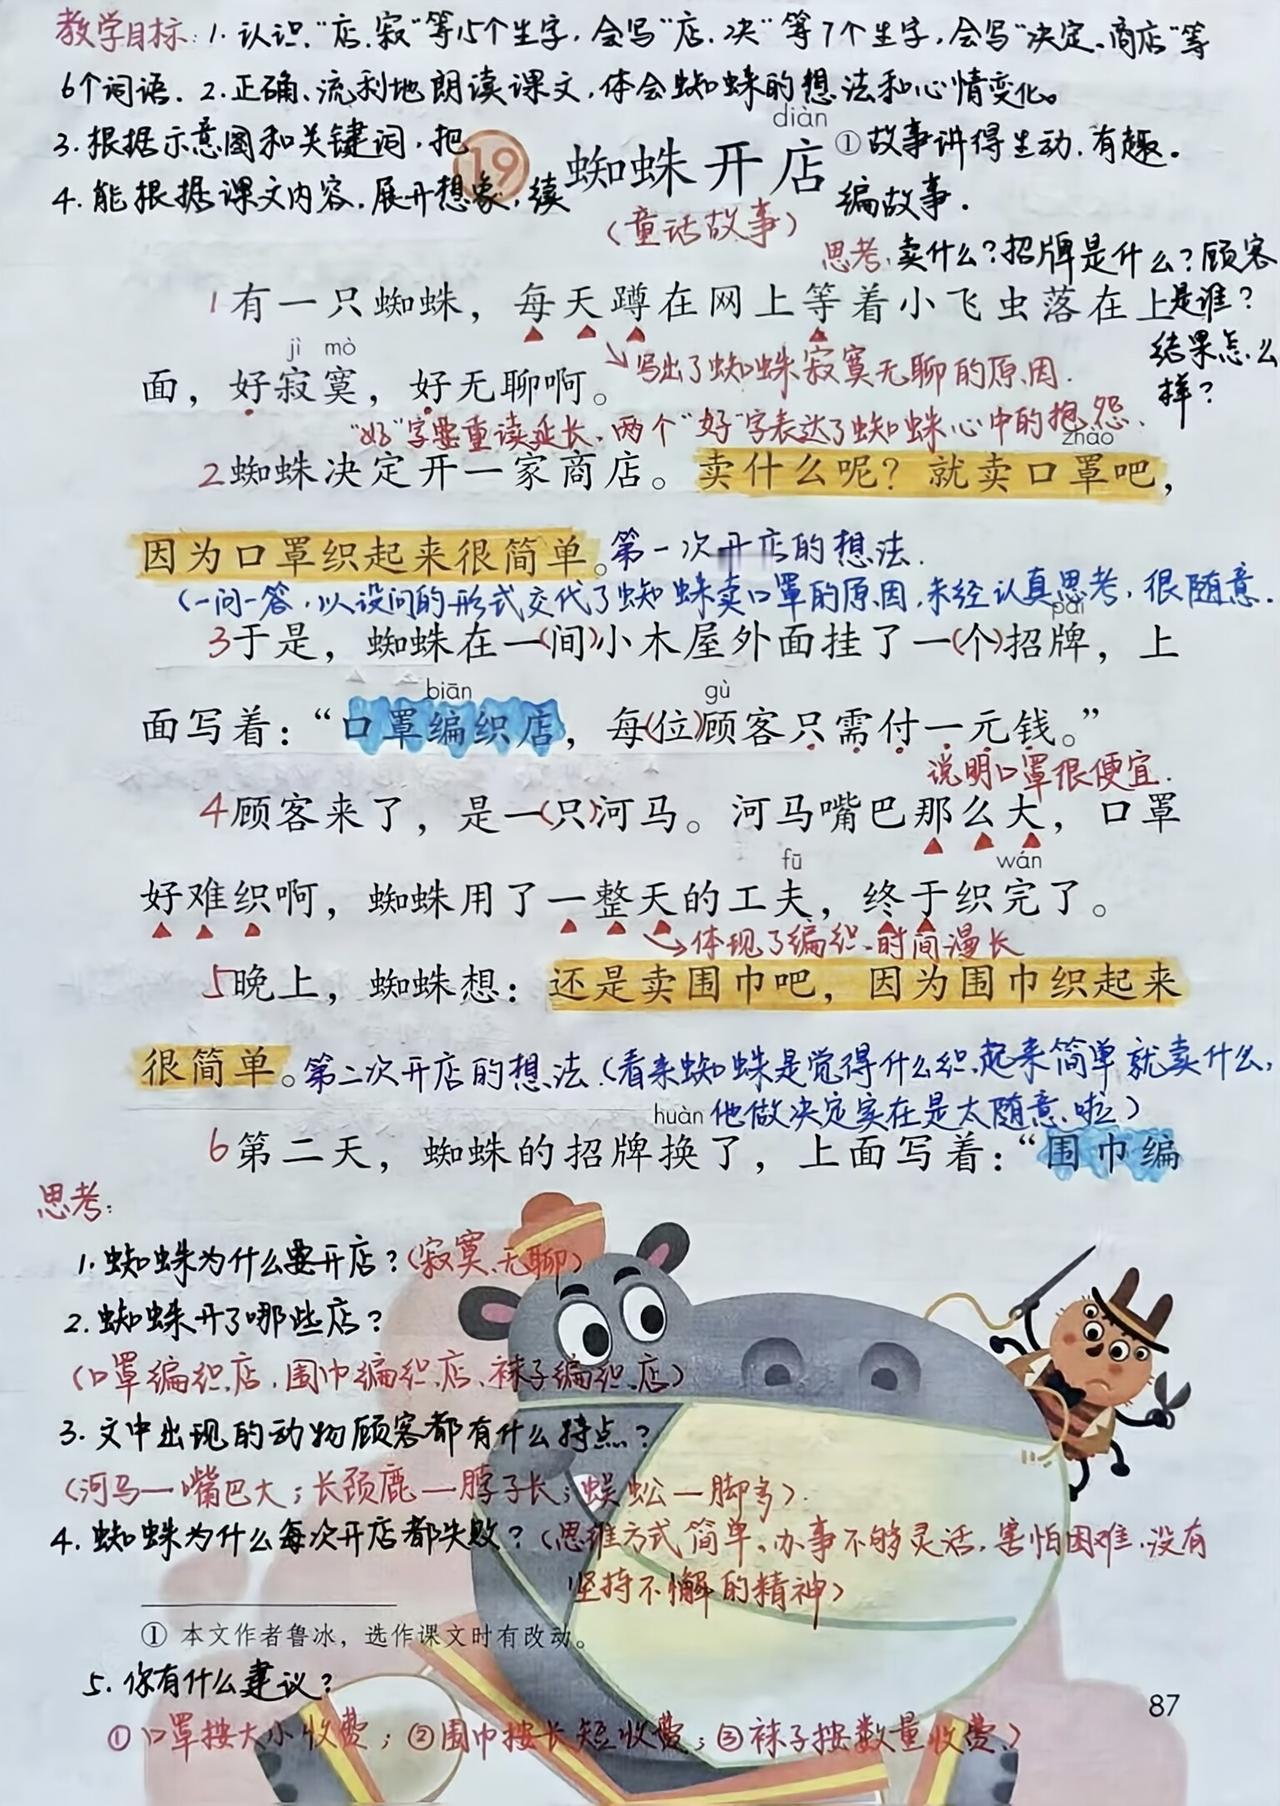 教学目标:1.认识“店、寂”等15个生字,会写“店、决”等7个生字,会写“决定、商店”等
6个词语.2.正确、流利地朗读课文,体会蜘蛛的想法和心情变化。
diàn
3.根据示意图和关键词,把 19 蜘蛛开店 ①故事讲得生动、有趣。
4.能根据课文内容,展开想象,续 编故事.
(童话故事)
思考:卖什么?招牌是什么?顾客
是谁?
结果怎么
样?
1有一只蜘蛛,每天蹲在网上等着小飞虫落在上
jì mò
写出了蜘蛛寂寞无聊的原因.
面,好寂寞,好无聊啊。
“好”字要重读延长,两个“好”字表达了蜘蛛心中的抱怨.
zhào
2蜘蛛决定开一家商店。卖什么呢?就卖口罩吧,
因为口罩织起来很简单。第一次开店的想法.
(一问一答,以设问的形式交代了蜘蛛卖口罩的原因,未经认真思考,很随意.
pái
3于是,蜘蛛在一(间)小木屋外面挂了一(个)招牌,上
biān gù
面写着:“口罩编织店,每(位)顾客只需付一元钱。”
说明口罩很便宜.
4顾客来了,是一(只)河马。河马嘴巴那么大,口罩
fū wán
好难织啊,蜘蛛用了一整天的工夫,终于织完了。
体现了编织时间漫长
5晚上,蜘蛛想:还是卖围巾吧,因为围巾织起来
很简单。第二次开店的想法.(看来蜘蛛是觉得什么织起来简单就卖什么,
他做决定实在是太随意啦)
huàn
6第二天,蜘蛛的招牌换了,上面写着:“围巾编
思考:
1.蜘蛛为什么要开店?(寂寞、无聊)
2.蜘蛛开了哪些店?
(口罩编织店、围巾编织店、袜子编织店)
3.文中出现的动物顾客都有什么特点?
(河马—嘴巴大;长颈鹿—脖子长;蜈蚣—脚多).
4.蜘蛛为什么每次开店都失败?(思维方式简单,办事不够灵活,害怕困难,没有
坚持不懈的精神)
① 本文作者鲁冰,选作课文时有改动。
5.你有什么建议?
①口罩按大小收费;②围巾按长短收费;③袜子按数量收费.)
87